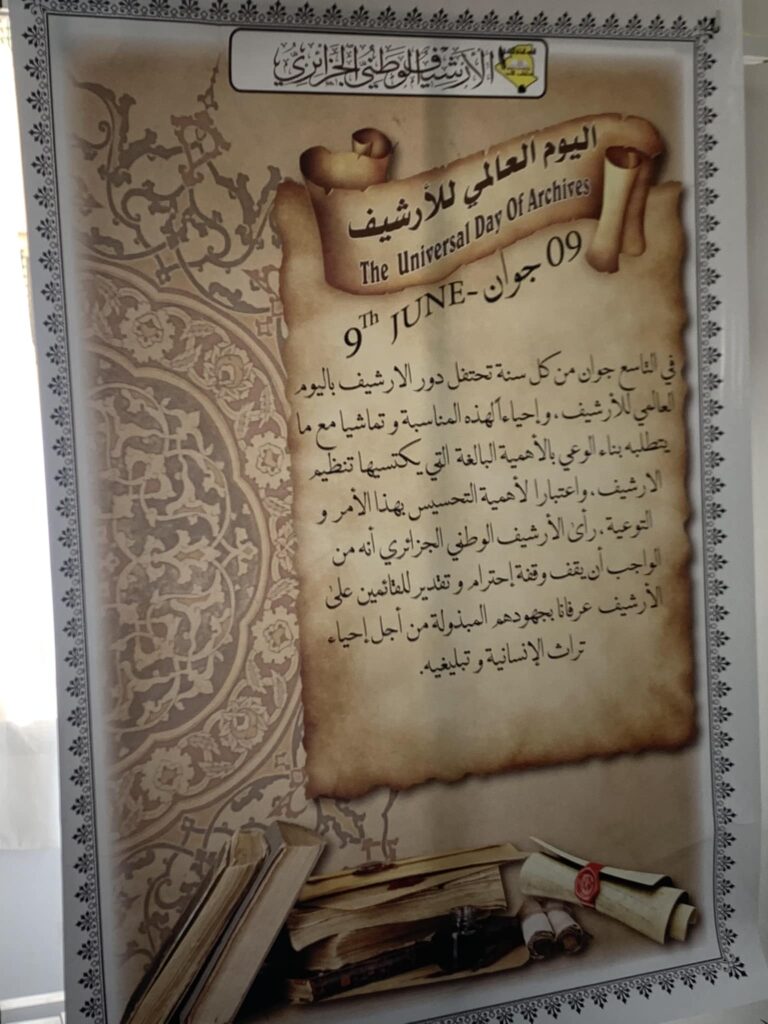 الأرشيف الوطني الجزائري
اليوم العالمي للأرشيف
The Universal Day Of Archives
09 جوان - 9Th JUNE
في التاسع جوان من كل سنة تحتفل دور الارشيف باليوم
العالمي للأرشيف ، و إحياءاً لهذه المناسبة و تماشيا مع ما
يتطلبه بناء الوعي بالأهمية البالغة التي يكتسيها تنظيم
الارشيف ، واعتبارا لأهمية التحسيس بهذا الأمر و
التوعية ، رأى الأرشيف الوطني الجزائري أنه من
الواجب أن يقف وقفة إحترام و تقدير للقائمين على
الأرشيف عرفانا بجهودهم المبذولة من أجل إحياء
تراث الإنسانية و تبليغيه.